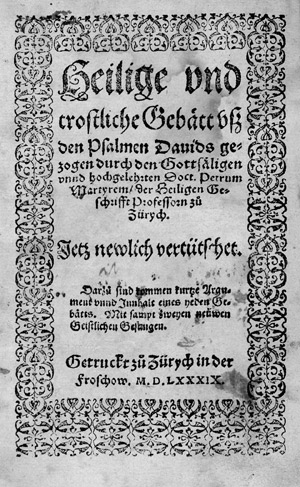 Heilige vnd
trostliche Gebätt vß
den Psalmen Dauids ge-
zogen durch den Gottsäligen
vnnd hochgelehrten Doct. Petrum
Martyrem / der Heiligen Ge-
schrifft Professorn zů
Zürych.
Jetz newlich vertütschet.
Darzů sind kommen kurtze Argu-
ment vnnd Innhalt eines yeden Ge-
bätts. Mit sampt zweyen neüwen
Geistlichen Gesangen.
Getruckt zů Zürych in der
Froschow. M. D. LXXXIX.